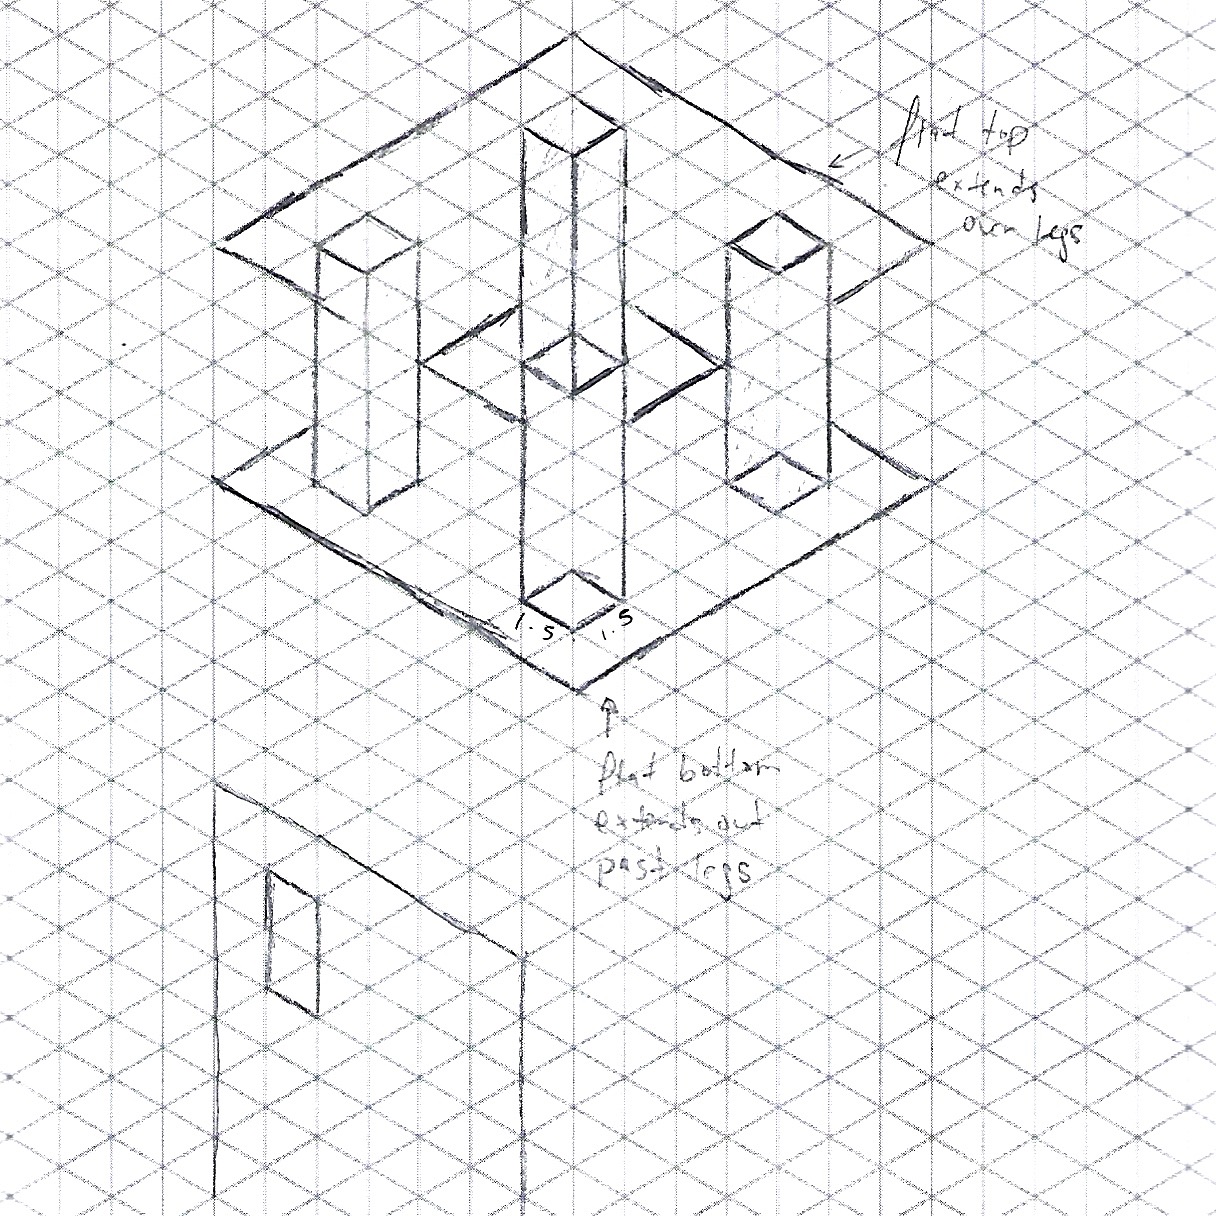 flat top
extends
over legs
1.5
1.5
flat bottom
extends out
past legs